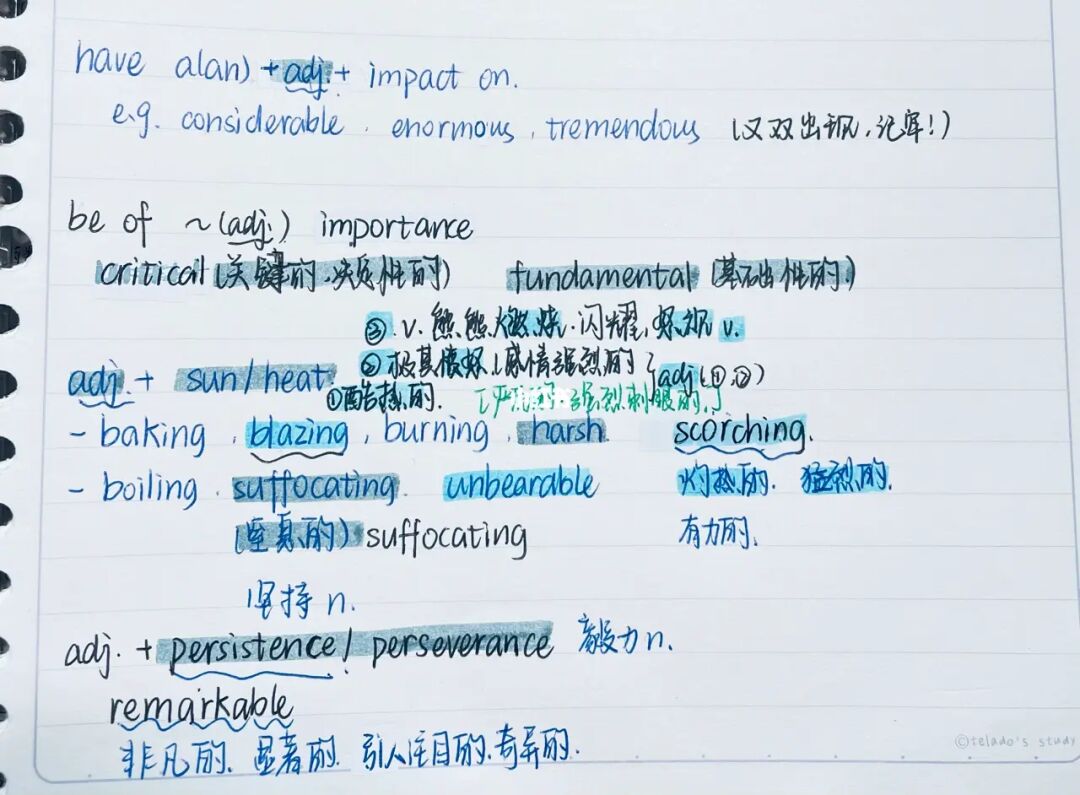 have a(an) + adj. + impact on.
e.g. considerable, enormous, tremendous (又双出现,记牢!)
be of ~(adj.) importance
critical (关键的,决定性的) fundamental (基础性的)
③ v. 熊熊燃烧.闪耀, 炫耀 v.
②极其愤怒(感情强烈的) adj(①,②)
adj. + sun/heat
①酷热的. 强烈刺眼的
- baking, blazing, burning, harsh, scorching.
- boiling, suffocating, unbearable 灼热的. 猛烈的.
(窒息的) suffocating 有力的.
坚持 n.
adj. + persistence / perseverance 毅力 n.
remarkable
非凡的、显著的、引人注目的、奇异的.
©telado's study